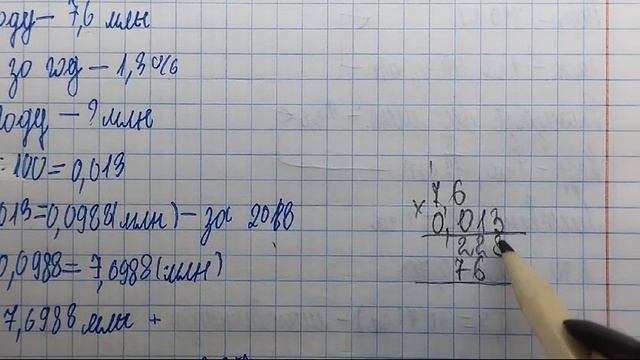 оду – 7,6 млн
за год – 1,3%
году – ? млн
: 100 = 0,013
013 = 0,0988 (млн) – за 2018
0,0988 = 7,6988 (млн)
7,6988 млн
1
7,6
×
0,013
228
76